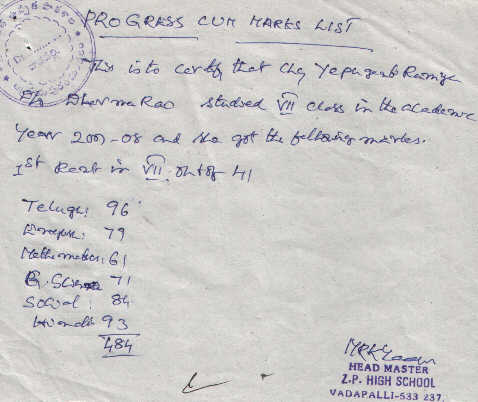 PROGRESS CUM MARKS LIST
This is to certify that Ch. Yepuganti Ramya
D/o Dharma Rao studied VII class in the academic
Year 2007-08 and she got the following marks.
1st Rank in VII. out of 41
Telugu: 96
79
Mathematics: 61
G. Science 71
Social : 84
Hindi 93
484
HEAD MASTER
Z.P. HIGH SCHOOL
VADAPALLI-533 237.